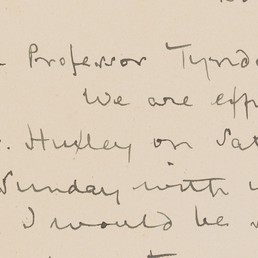 Professor Tynd
We are exp
. Huxley on Sat
Sunday with
I would be